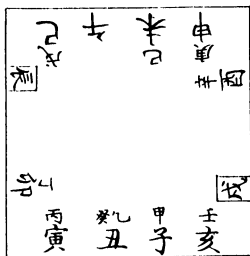 巳 午 未 申
戊 己 庚
辰 辛 酉
卯 丁 戌
丙 癸乙 甲 壬
寅 丑 子 亥